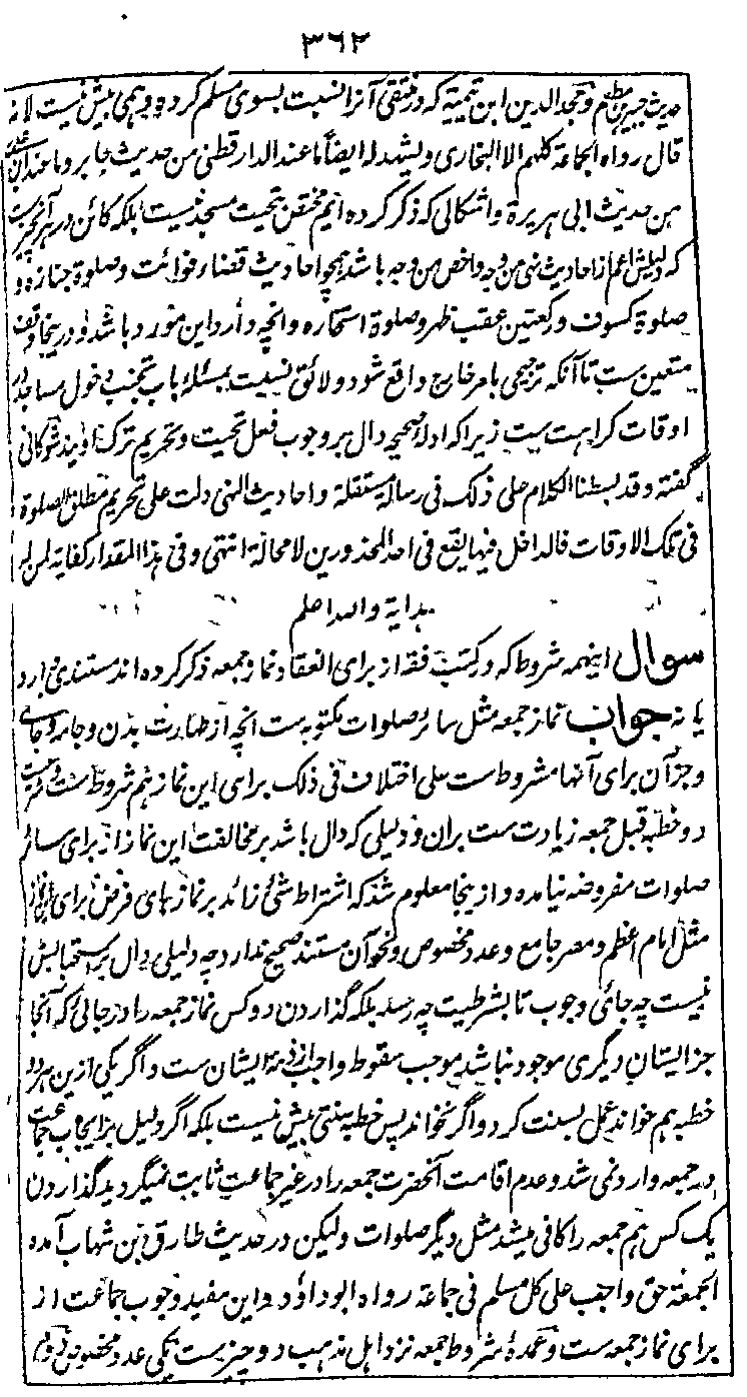 ٣٦٢
حدیث جبیر بن مطعم و مجد الدین ابن تیمیة که در منتقی آنرا نسبت بسوی مسلم کرده وهمی بیش نیست لانه
قال رواه الجماعة کلهم الا البخاری ویشهد له ایضا ما عند الدارقطنی من حدیث جابر وما عند ابن عدی
من حدیث ابی هریرة و اشکالی که ذکر کرده ایم مختص بتحیت مسجد نیست بلکه کائن در هر آنچیزست
که دلیلش اعم از احادیث نهی من وجه واخص من وجه باشد همچو احادیث قضاء فوائت وصلوة جنازه و
صلوة کسوف ورکعتین عقب ظهر وصلوة استخاره وانچه وارد این مورد باشد و در ینجا وقف
متعین ست تا آنکه ترجیحی بامر خارج واقع شود ولائق نسبت بمسئله باب تجنب دخول مساجد در
اوقات کراهت ست زیرا که ادله صحیحه دال بر وجوب فعل تحیت وتحریم ترک اویند شوکانی
گفته وقد بسطنا الکلام علی ذلک فی رسالة مستقلة واحادیث النهی دلت علی تحریم مطلق الصلوة
فی تلک الاوقات فالداخل فیها یقع فی احد المحذورین لا محالة انتهی وفی هذا المقدار کفایة لمن له
هدایة والله اعلم
سوال اینهمه شروط که در کتب فقه از برای انعقاد نماز جمعه ذکر کرده اند مستندی دارد
یا نه جواب نماز جمعه مثل سائر صلوات مکتوبه ست انچه از طهارت بدن و جامه و جای
وجز آن برای آنها مشروط ست علی اختلاف فی ذلک برای این نماز هم شروط ست ومشروعیت
دو خطبه قبل جمعه زیادت ست بران و دلیلی که دال باشد بر مخالفت این نماز از برای سائر
صلوات مفروضه نیامده و ازینجا معلوم شد که اشتراط شئ زائد بر نمازهای فرض برای این نماز
مثل امام اعظم ومصر جامع وعدد مخصوص ونحو آن مستند صحیح ندارد چه دلیلی دال بر استحبابش
نیست چه جائی وجوب تا بشرطیت چه رسد بلکه گذاردن دو کس نماز جمعه را در جائی که آنجا
جز ایشان دیگری موجود نباشد موجب سقوط واجب از ذمه ایشان ست و اگر یکی ازین هر دو
خطبه هم خواند عمل بسنت کرد و اگر نخواند پس خطبه سنتی بیش نیست بلکه اگر دلیل بر ایجاب جماعت
در جمعه وارد نمی شد وعدم اقامت آنحضرت جمعه را در غیر جماعت ثابت نمیگردید گذاردن
یک کس هم جمعه را کافی میشد مثل دیگر صلوات ولیکن در حدیث طارق بن شهاب آمده
الجمعة حق واجب علی کل مسلم فی جماعة رواه ابوداؤد و این مفید وجوب جماعت از
برای نماز جمعه ست وعمدهٔ شروط جمعه نزد اهل مذهب دو چیز ست یکی عدد مخصوص دوم